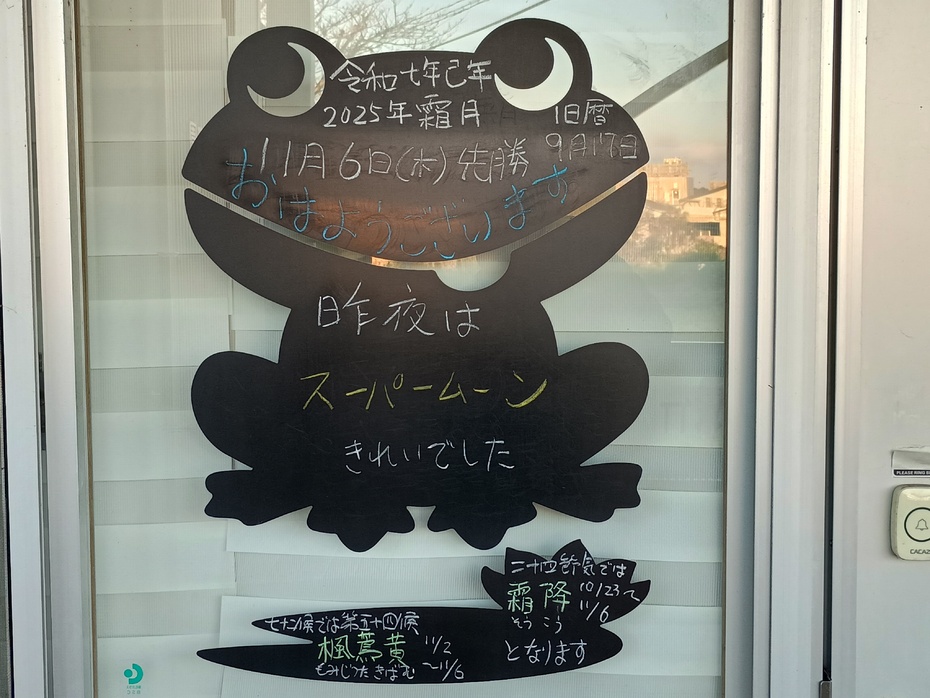 令和七年己年
2025年霜月
旧暦
9月17日
11月6日(木)先勝
おはようございます
昨夜は
スーパームーン
きれいでした
二十四節気では
霜降 10/23〜11/6
そうこう
となります
七十二候では第五十四候
楓蔦黄 11/2〜11/6
もみじつたきばむ
PLEASE RING
CACAZ